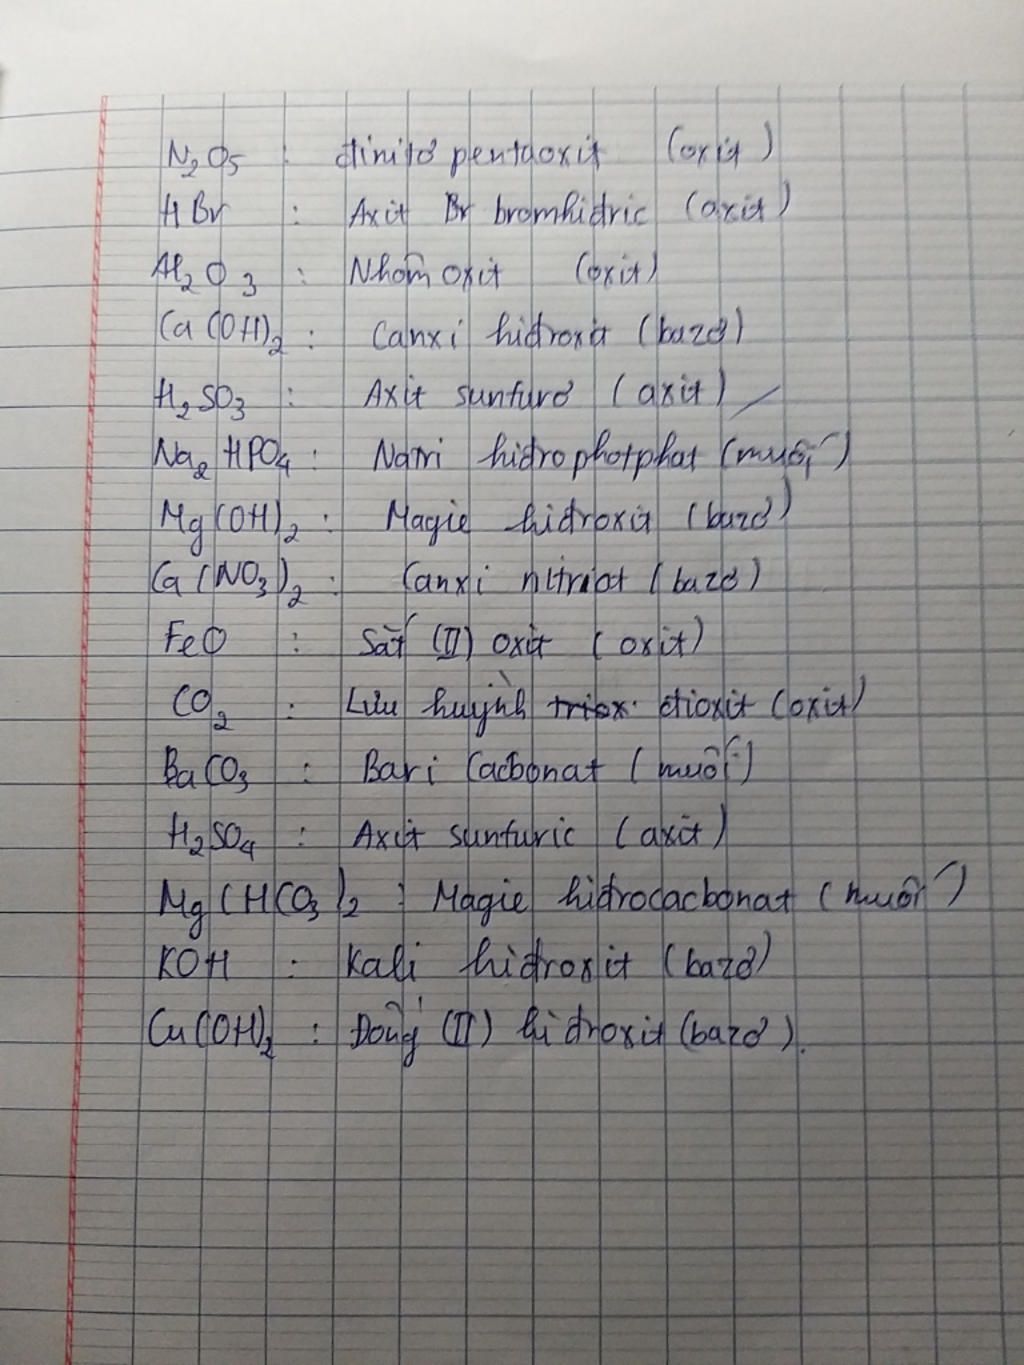 N₂O₅ : đinitơ pentaoxit (oxit)
HBr : Axit Br bromhidric (axit)
Al₂O₃ : Nhôm oxit (oxit)
Ca(OH)₂ : Canxi hiđroxit (bazơ)
H₂SO₃ : Axit sunfurơ (axit)
Na₂HPO₄ : Natri hiđrophotphat (muối)
Mg(OH)₂ : Magie hiđroxit (bazơ)
Ca(NO₃)₂ : Canxi nitrat (bazơ)
FeO : Sắt (II) oxit (oxit)
CO₂ : Lưu huỳnh triox đioxit (oxit)
BaCO₃ : Bari Cacbonat (muối)
H₂SO₄ : Axit sunfuric (axit)
Mg(HCO₃)₂ : Magie hiđrocacbonat (muối)
KOH : Kali hiđroxit (bazơ)
Cu(OH)₂ : Đồng (II) hiđroxit (bazơ).